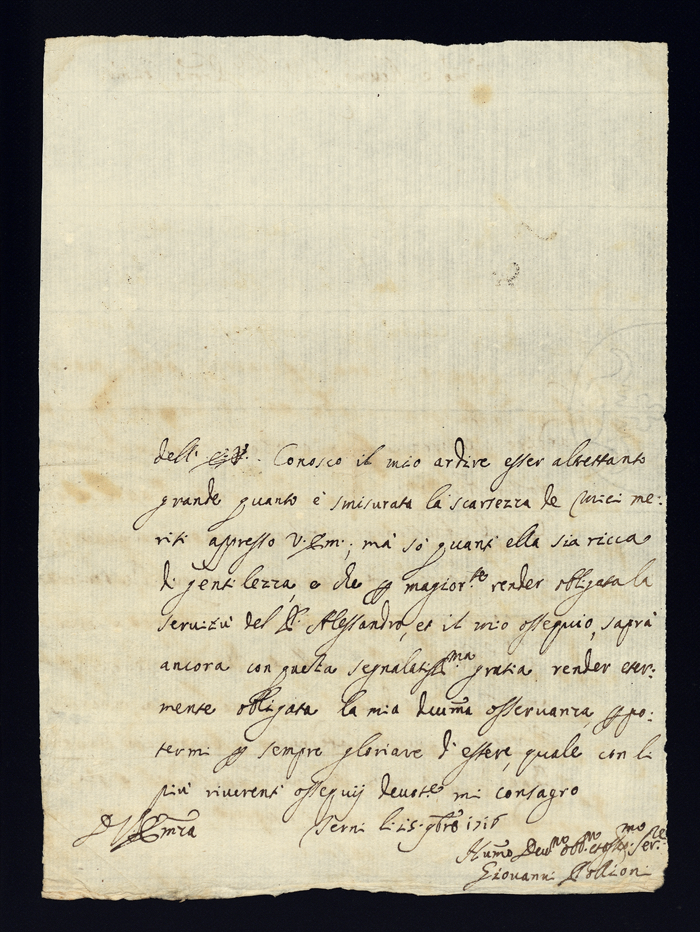 dell' Conosco il mio ardire esser altrettanto
grande quanto è smisurata la scarsezza de miei me:
riti appresso V. Em.; mà sò quant' ella sia ricca
di gentilezza, e che magior.te render obligata la
servitù del Alessandro, et il mio ossequio, saprà
ancora con questa segnalatiss.ma gratia render eter:
mente obligata la mia osservanza, po:
termi sempre gloriare d'essere, quale con li
più riverenti ossequij devote mi consagro
D V Emza li 25 9bre 1716
Humo Devmo
Giovanni